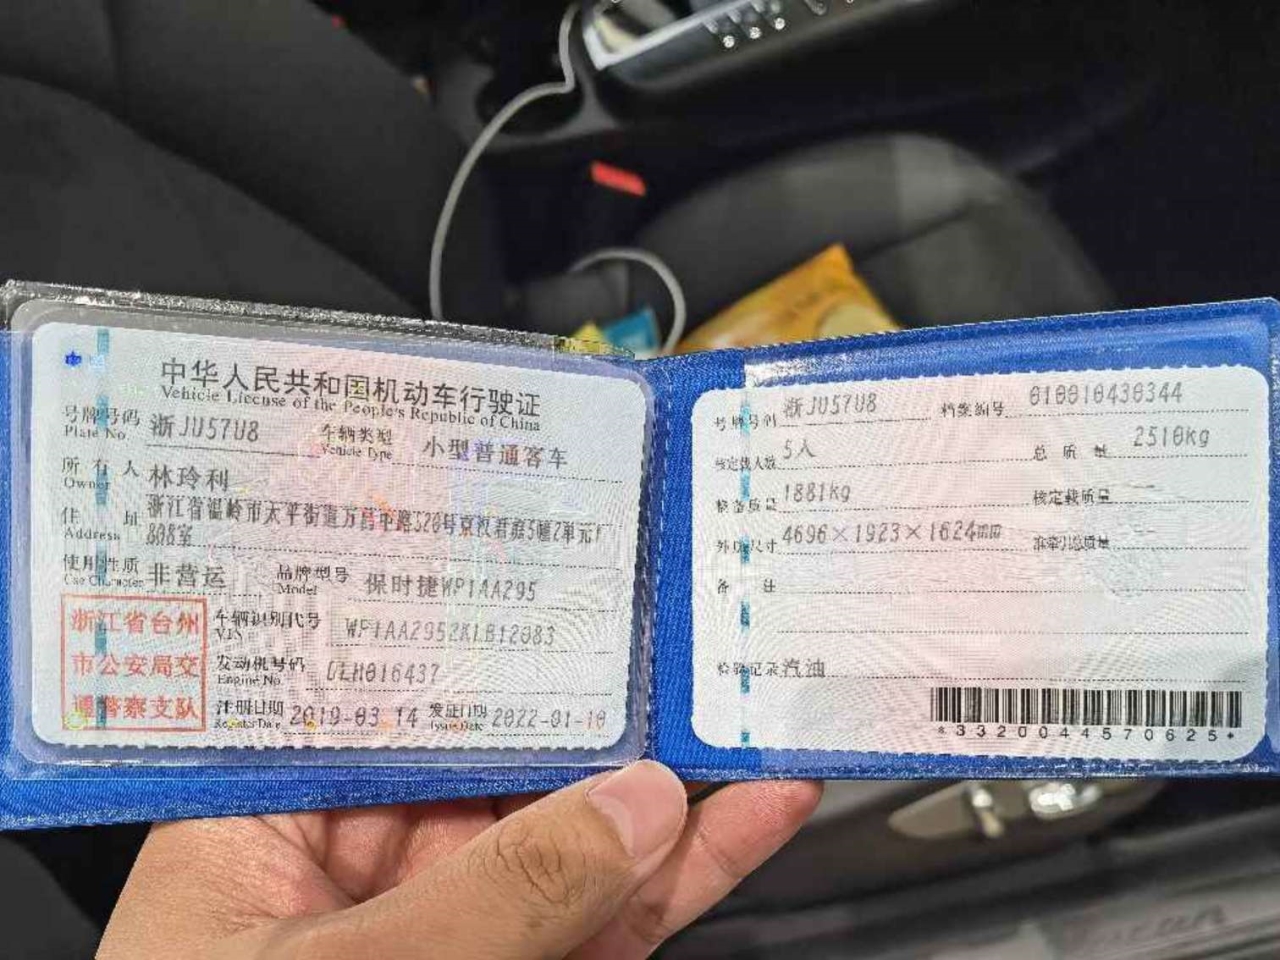 中华人民共和国机动车行驶证
Vehicle License of the People's Republic of China
号牌号码 浙JU57U8 车辆类型 小型普通客车
Plate No. Vehicle Type
所有人 林玲利
Owner
住址 浙江省温岭市太平街道万昌中路520号 5幢2单元1
Address 808室
使用性质 非营运 品牌型号 保时捷WP1AA295
Use Character Model
浙江省台州
市公安局交
通警察支队
车辆识别代号 WP1AA2952KLB12083
VIN
发动机号码 DLH016437
Engine No.
注册日期 2019-03-14 发证日期 2022-01-10
Register Date Issue Date
号牌号码 浙JU57U8 档案编号 010010430344
核定载人数 5人 总质量 2510kg
整备质量 1881kg 核定载质量
外廓尺寸 4696×1923×1624mm 准牵引总质量
备注
检验记录 汽油
*3320044570625*